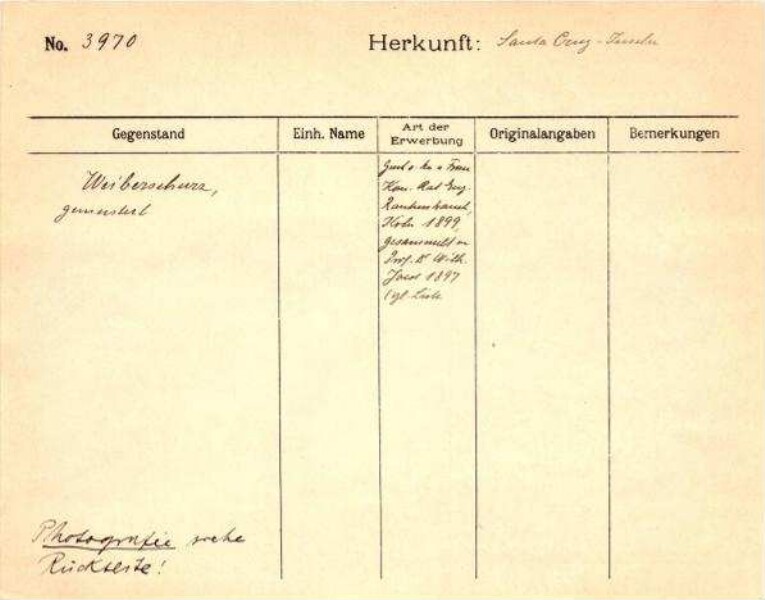 No. 3970
Herkunft: Santa Cruz-Inseln
Gegenstand
Einh. Name
Art der Erwerbung
Originalangaben
Bemerkungen
Weiberschurz,
gemustert
Frau
Rat Eug.
Rautenstrauch,
Köln 1899,
gesammelt v.
Prof. Dr Wilh.
Joest 1897
vgl. Liste
Photografie siehe
Rückseite!